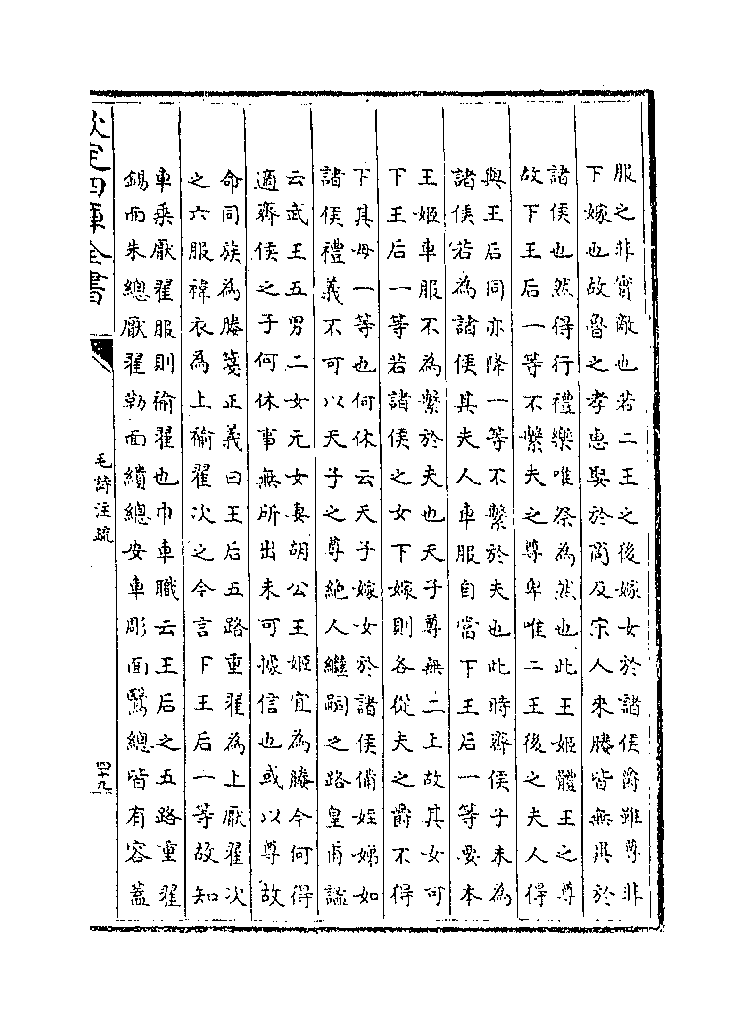 服之非實敵也若二王之後嫁女於諸侯爵雖尊非
下嫁也故魯之孝惠娶於商及宋人來媵皆無異於
諸侯也然得行禮樂唯祭為然也此王姬體王之尊
故下王后一等不繫夫之尊卑唯二王後之夫人得
與王后同亦降一等不繫於夫也此時齊侯子未為
諸侯若為諸侯其夫人車服自當下王后一等要本
王姬車服不為繫於夫也天子尊無二上故其女可
下王后一等若諸侯之女下嫁則各從夫之爵不得
下其母一等也何休云天子嫁女於諸侯備姪娣如
諸侯禮義不可以天子之尊絶人繼嗣之路皇甫謐
云武王五男二女元女妻胡公王姬宜為媵今何得
適齊侯之子何休事無所出未可據信也或以尊故
命同族為媵箋正義曰王后五路重翟為上厭翟次
之六服褘衣為上褕翟次之今言下王后一等故知
車乘厭翟服則褕翟也巾車職云王后之五路重翟
錫面朱總厭翟勒面繢總安車彫面鷖總皆有容蓋
欽定四庫全書
毛詩注疏
四十九